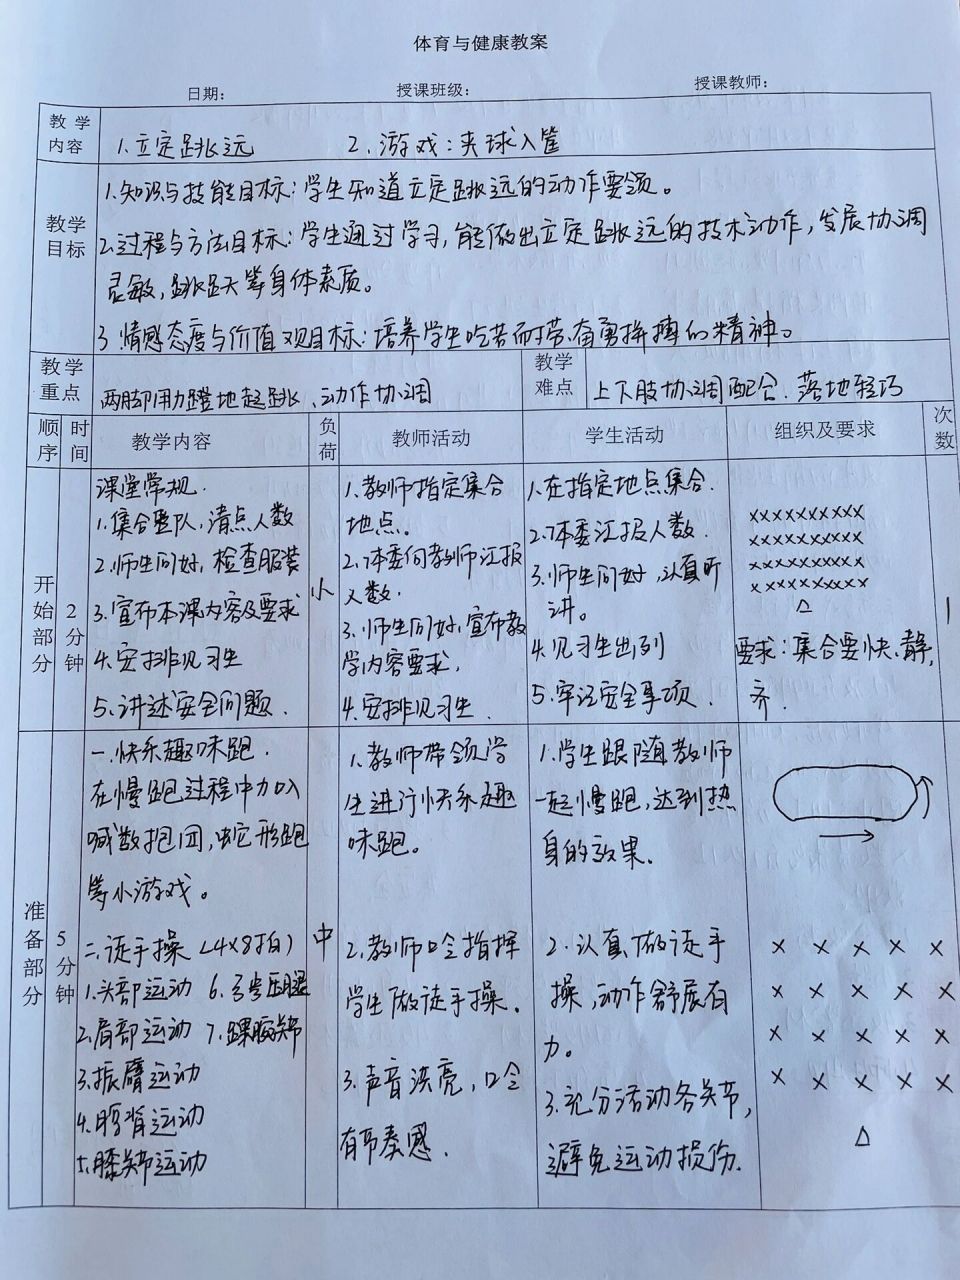 体育与健康教案
日期： 授课班级： 授课教师：
教学内容
1.立定跳远 2.游戏：夹球入筐
教学目标
1.知识与技能目标：学生知道立定跳远的动作要领。
2.过程与方法目标：学生通过学习，能做出立定跳远的技术动作，发展协调
灵敏，跳跃等身体素质。
3.情感态度与价值观目标：培养学生吃苦而勇拼搏的精神。
教学重点
两脚用力蹬地起跳、动作协调
教学难点
上下肢协调配合、落地轻巧
顺序 时间 教学内容 负荷 教师活动 学生活动 组织及要求 次数
开始部分
2分钟
课堂常规.
1.集合整队,清点人数
2.师生问好,检查服装
3.宣布本课内容及要求
4.安排见习生
5.讲述安全问题.
小
1.教师指定集合
地点.
2.体委向教师汇报
人数.
3.师生问好,宣布教
学内容要求.
4.安排见习生.
1.在指定地点集合.
2.体委汇报人数.
3.师生问好,认真听
讲。
4.见习生出列
5.牢记安全事项.
××××××××××
××××××××××
××××××××××
××××××××××
△
要求：集合要快、静,
齐.
1
准备部分
5分钟
一.快乐趣味跑.
在慢跑过程中加入
喊数抱团,蛇形跑
等小游戏。
二.徒手操(4×8拍)
1.头部运动 6.弓步压腿
2.肩部运动 7.踝腕关节
3.振臂运动
4.腰背运动
5.膝关节运动
中
1.教师带领学
生进行快乐趣
味跑。
2.教师口令指挥
学生做徒手操.
3.声音洪亮,口令
有节奏感.
1.学生跟随教师
一起慢跑,达到热
身的效果.
2.认真做徒手
操,动作舒展有
力。
3.充分活动各关节,
避免运动损伤.
× × × × ×
× × × × ×
× × × × ×
× × × × ×
△